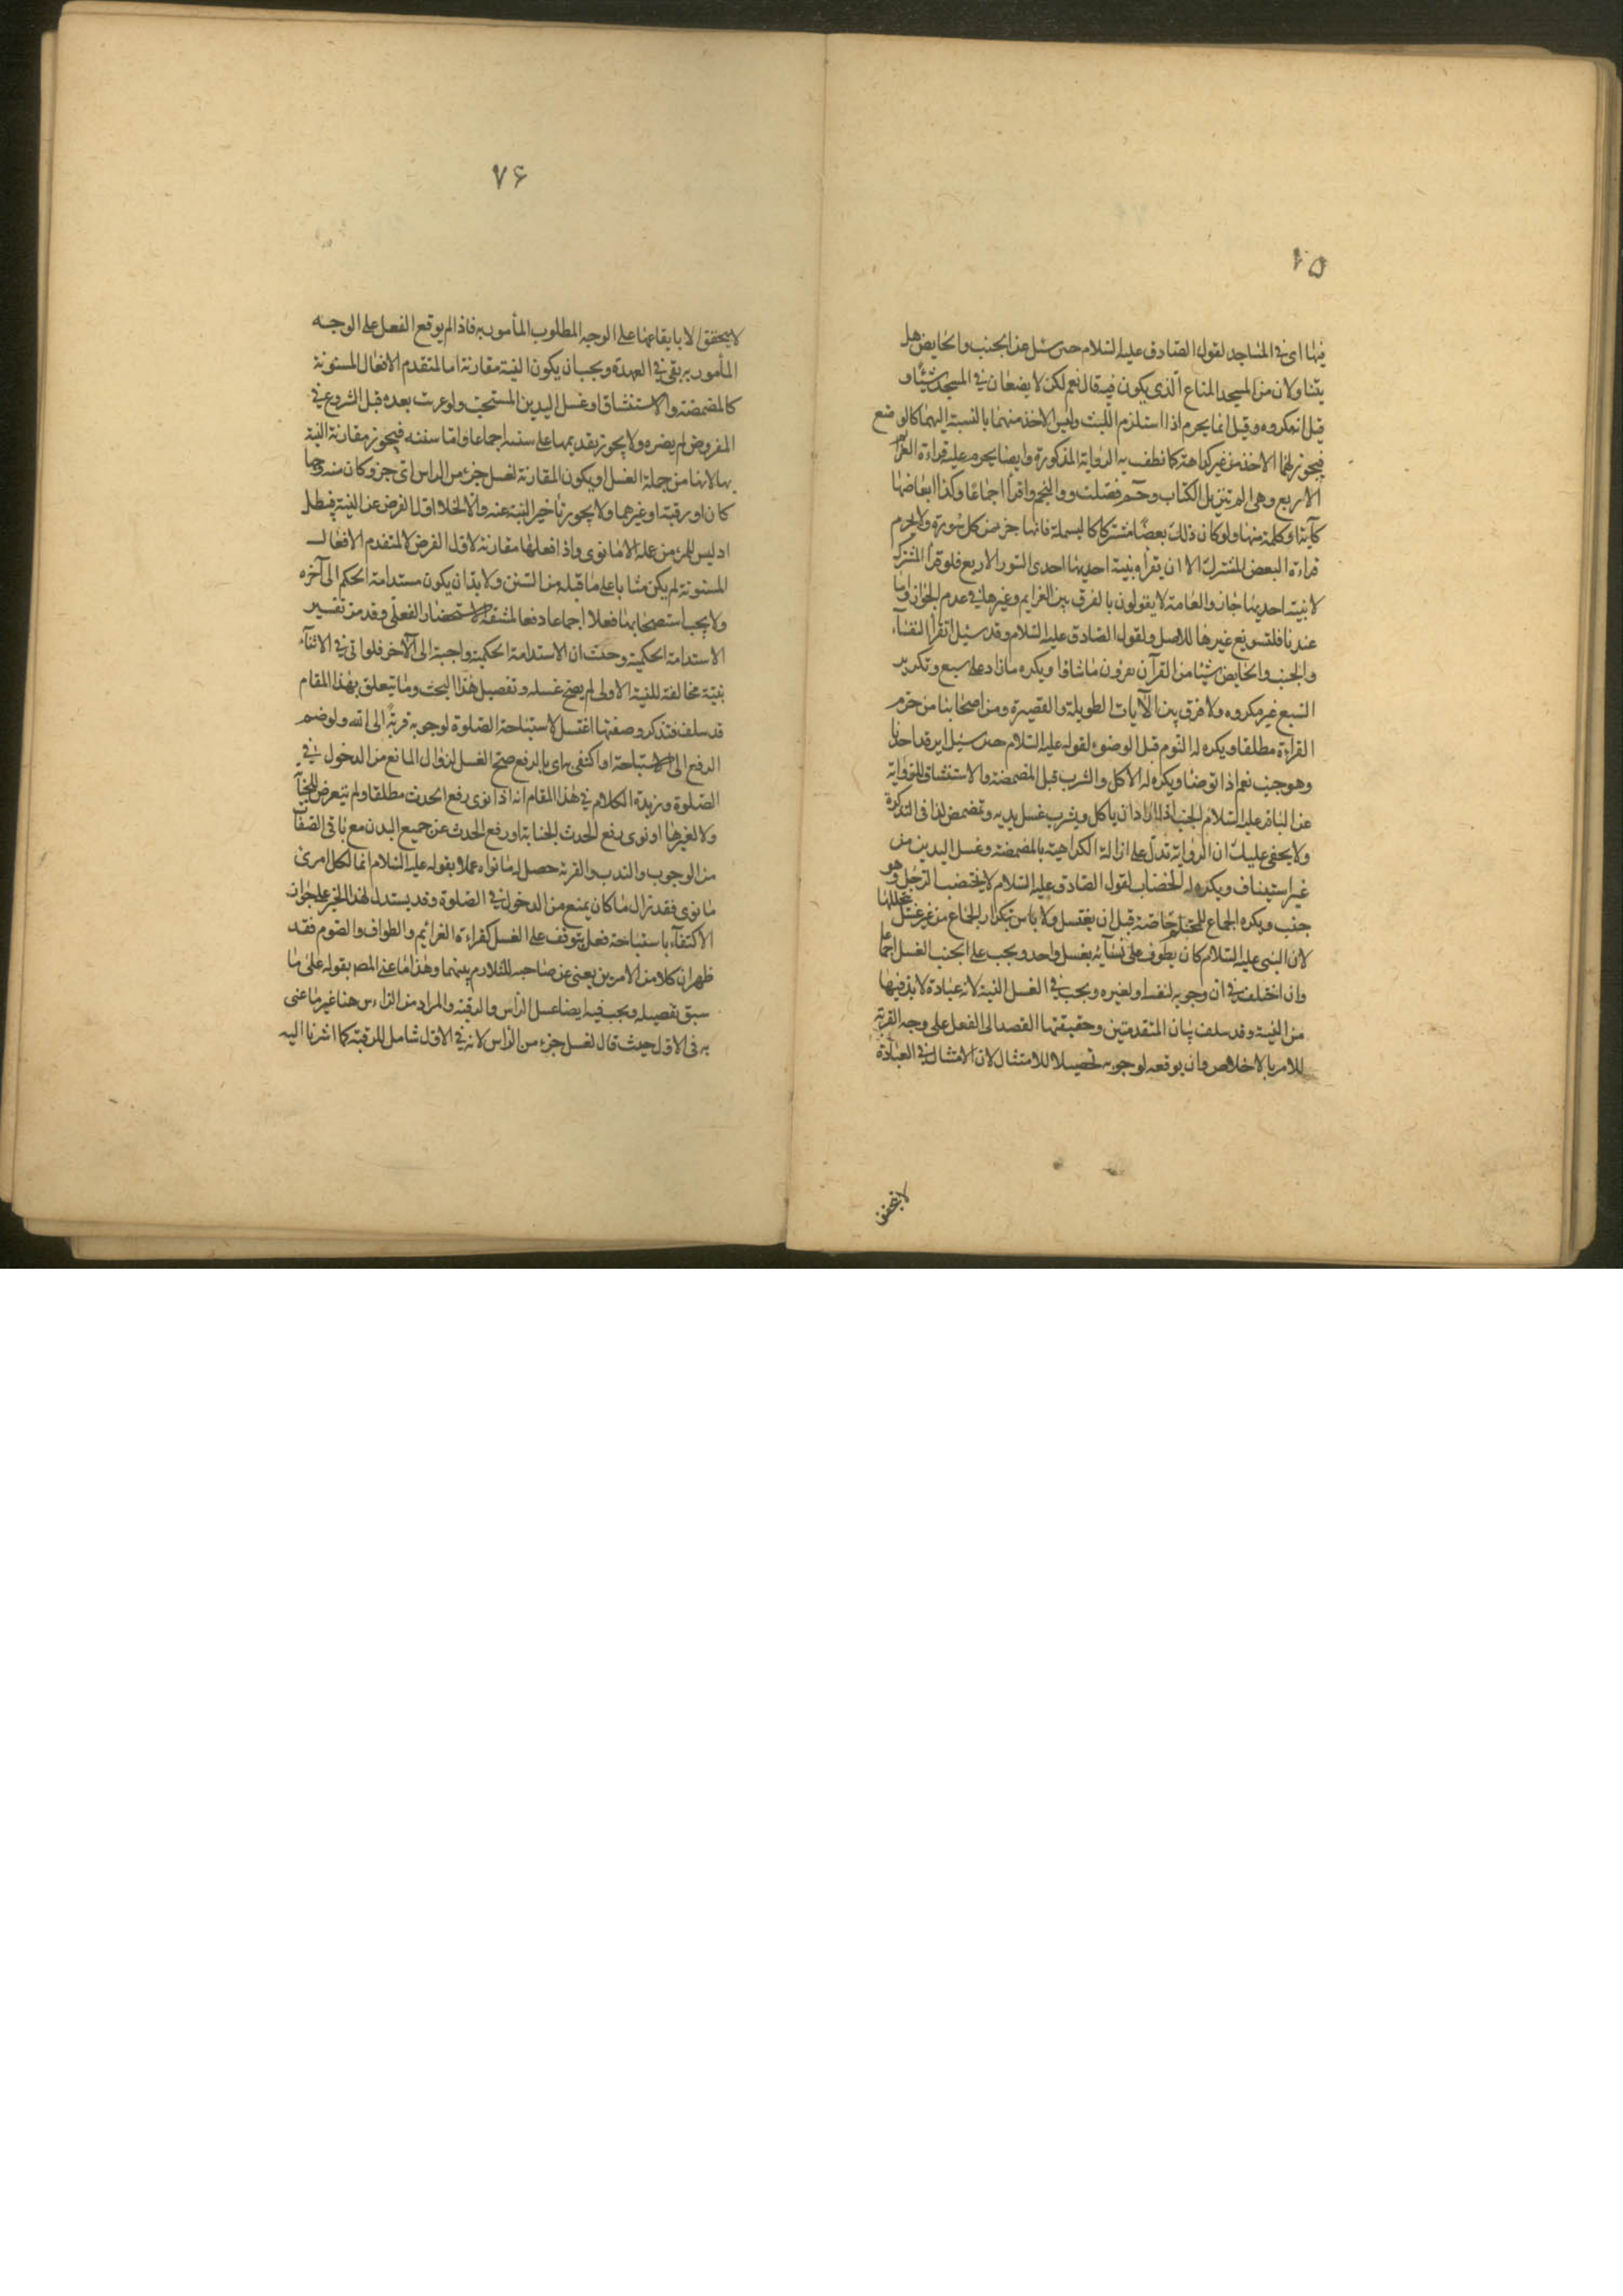 ٧٥
فيها اى فى المساجد لقول الصادق عليه السلام حين سئل عن الجنب والحايض هل
يتناولان من المسجد المتاع الذى يكون فيه قال نعم لكن لا يضعان فى المسجد شيئا و
قيل انه مكروه وقيل انما يحرم اذا استلزم اللبث وليس الاخذ منهما بالنسبة اليهما كالوضع
فيجوز لهما الاخذ من غير كراهة كما نطقت به الرواية المذكورة وايضا يحرم عليه قراءة العزائم
الاربع وهى الم تنزيل الكتاب وحم فصلت والنجم واقرأ اجماعا وكذا ابعاضها
كآية او كلمة منها ولو كان ذلك بعضا مشتركا كالبسملة فانها جزء من كل سورة ولا يحرم
قراءة البعض المشترك الا ان يقرأ بنية احديها احدى السور الاربع فلو قرأ المشتركة
لا بنية احديها جاز والعامة لا يقولون بالفرق بين العزايم وغيرها فى عدم الجواز واما
عندنا فلتسويغ غيرها للاصل ولقول الصادق عليه السلام وقد سئل اتقرأ النفساء
والجنب والحايض شيئا من القرآن يقرؤن ما شاؤا ويكره ما زاد على سبع وتكرير
السبع غير مكروه ولا فرق بين الآيات الطويلة والقصيرة ومن اصحابنا من حرم
القراءة مطلقا ويكره له النوم قبل الوضوء لقوله عليه السلام حين سئل ايرقد احدنا
وهو جنب نعم اذا توضأ ويكره له الاكل والشرب قبل المضمضة والاستنشاق للرواية
عن الباقر عليه السلام الجنب اذا اراد ان ياكل ويشرب غسل يديه وتمضمض كذا فى التذكرة
ولا يخفى عليك ان الرواية تدل على ازالة الكراهية بالمضمضة وغسل اليدين من
غير استيناف ويكره له الخضاب لقول الصادق عليه السلام لا يختضب الرجل وهو
جنب ويكره الجماع للمحتلم خاصة قبل ان يغتسل ولا باس بتكرار الجماع من غير غسل يتخللها
لان النبى عليه السلام كان يطوف على نسائه بغسل واحد ويجب على الجنب الغسل اجماعا
وان اختلف فى ان وجوبه لنفسه او لغيره ويجب فى الغسل النية لانه عبادة لا بد فيها
من النية وقد سلف بيان المتقدمتين وحقيقتها القصد الى الفعل على وجه القربة
للامر بالاخلاص وان يوقعه لوجوبه تحصيلا للامتثال لان الامتثال فى العبادة
لا يتحقق
٧۶
لا يتحقق الا بايقاعها على الوجه المطلوب المأمور به فاذا لم يوقع الفعل على الوجه
المأمور به بقى فى العهدة ويجب ان يكون النية مقارنة اما لمتقدم الافعال المسنونة
كالمضمضة والاستنشاق او غسل اليدين المستحب ولو عزبت بعده قبل الشروع فى
المفروض لم يضره ولا يجوز تقديمها على سننه اجماعا واما سننه فيجوز مقارنة النية
بها لانها من جملة الغسل ويكون المقارنة لغسل جزء من الراس اى جزء كان منه وجها
كان او رقبة او غيرهما ولا يجوز تأخير النية عنه والا لخلا اول الفرض عن النية فيبطل
اذ ليس للمرء من عمله الا ما نوى واذا فعلها مقارنة لاول الفرض لا لمتقدم الافعال
المسنونة لم يكن مثابا على ما قبله من السنن ولا بد ان يكون مستدامة الحكم الى آخره
ولا يجب استصحابها فعلا اجماعا دفعا لمشقة الاستحضار الفعلى وقد مر تفسير
الاستدامة الحكمية وحيث ان الاستدامة الحكمية واجبة الى الآخر فلو اتى فى الاثناء
بنية مخالفة للنية الاولى لم يصح غسله وتفصيل هذا البحث وما يتعلق بهذا المقام
قد سلف فتذكر وصفتها اغتسل لاستباحة الصلوة لوجوبه قربة الى الله ولو ضم
الرفع الى الاستباحة او اكتفى به اى بالرفع صح الغسل لزوال المانع من الدخول فى
الصلوة وزبدة الكلام فى هذا المقام انه اذا نوى رفع الحدث مطلقا ولم يتعرض للجنابة
ولا لغيرها او نوى رفع الحدث الجنابة او رفع الحدث عن جميع البدن مع باقى الصفات
من الوجوب والندب والقربة حصل له ما نواه عملا بقوله عليه السلام انما لكل امرئ
ما نوى فقد زال ما كان يمنع من الدخول فى الصلوة وقد يستدل لهذا الخبر على جواز
الاكتفاء باستباحة فعل يتوقف على الغسل كقراءة العزائم والطواف والصوم فقد
ظهر ان كلا من الامرين يغنى عن صاحبه للتلازم بينهما وهذا ما عنى المصـ بقوله على ما
سبق تفصيله ويجب فيه ايضا غسل الراس والرقبة والمراد من الراس هنا غير ما عنى
به فى الاول حيث قال لغسل جزء من الراس لانه فى الاول شامل للرقبة كما اشرنا اليه